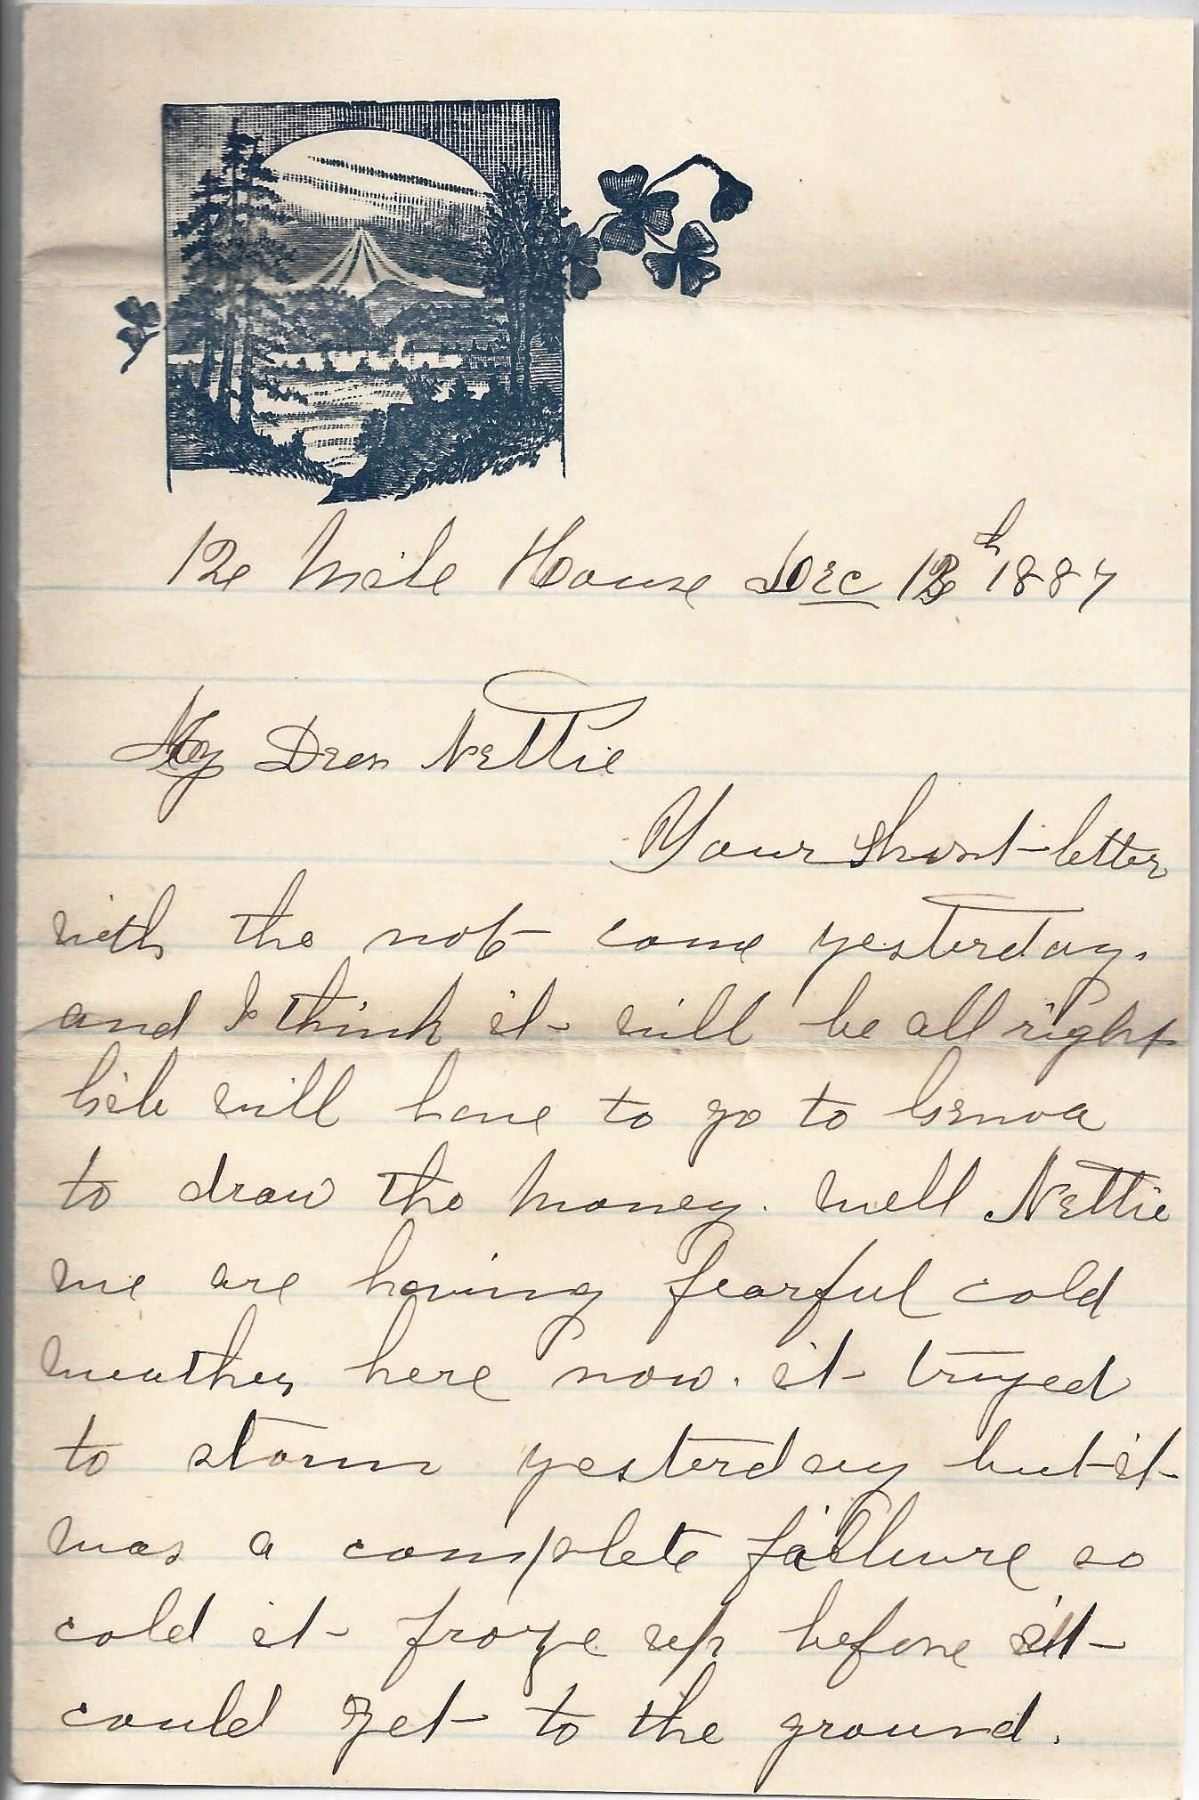 12 Mile House Dec 12th 1887
My Dear Nettie
Your short letter
with the not come yesterday.
and I think it will be all right
will have to go to Genoa
to draw the money. well Nettie
we are having fearful cold
weather here now. it tryed
to storm yesterday but it
was a complete failure so
cold it froze up before it
could get to the ground.